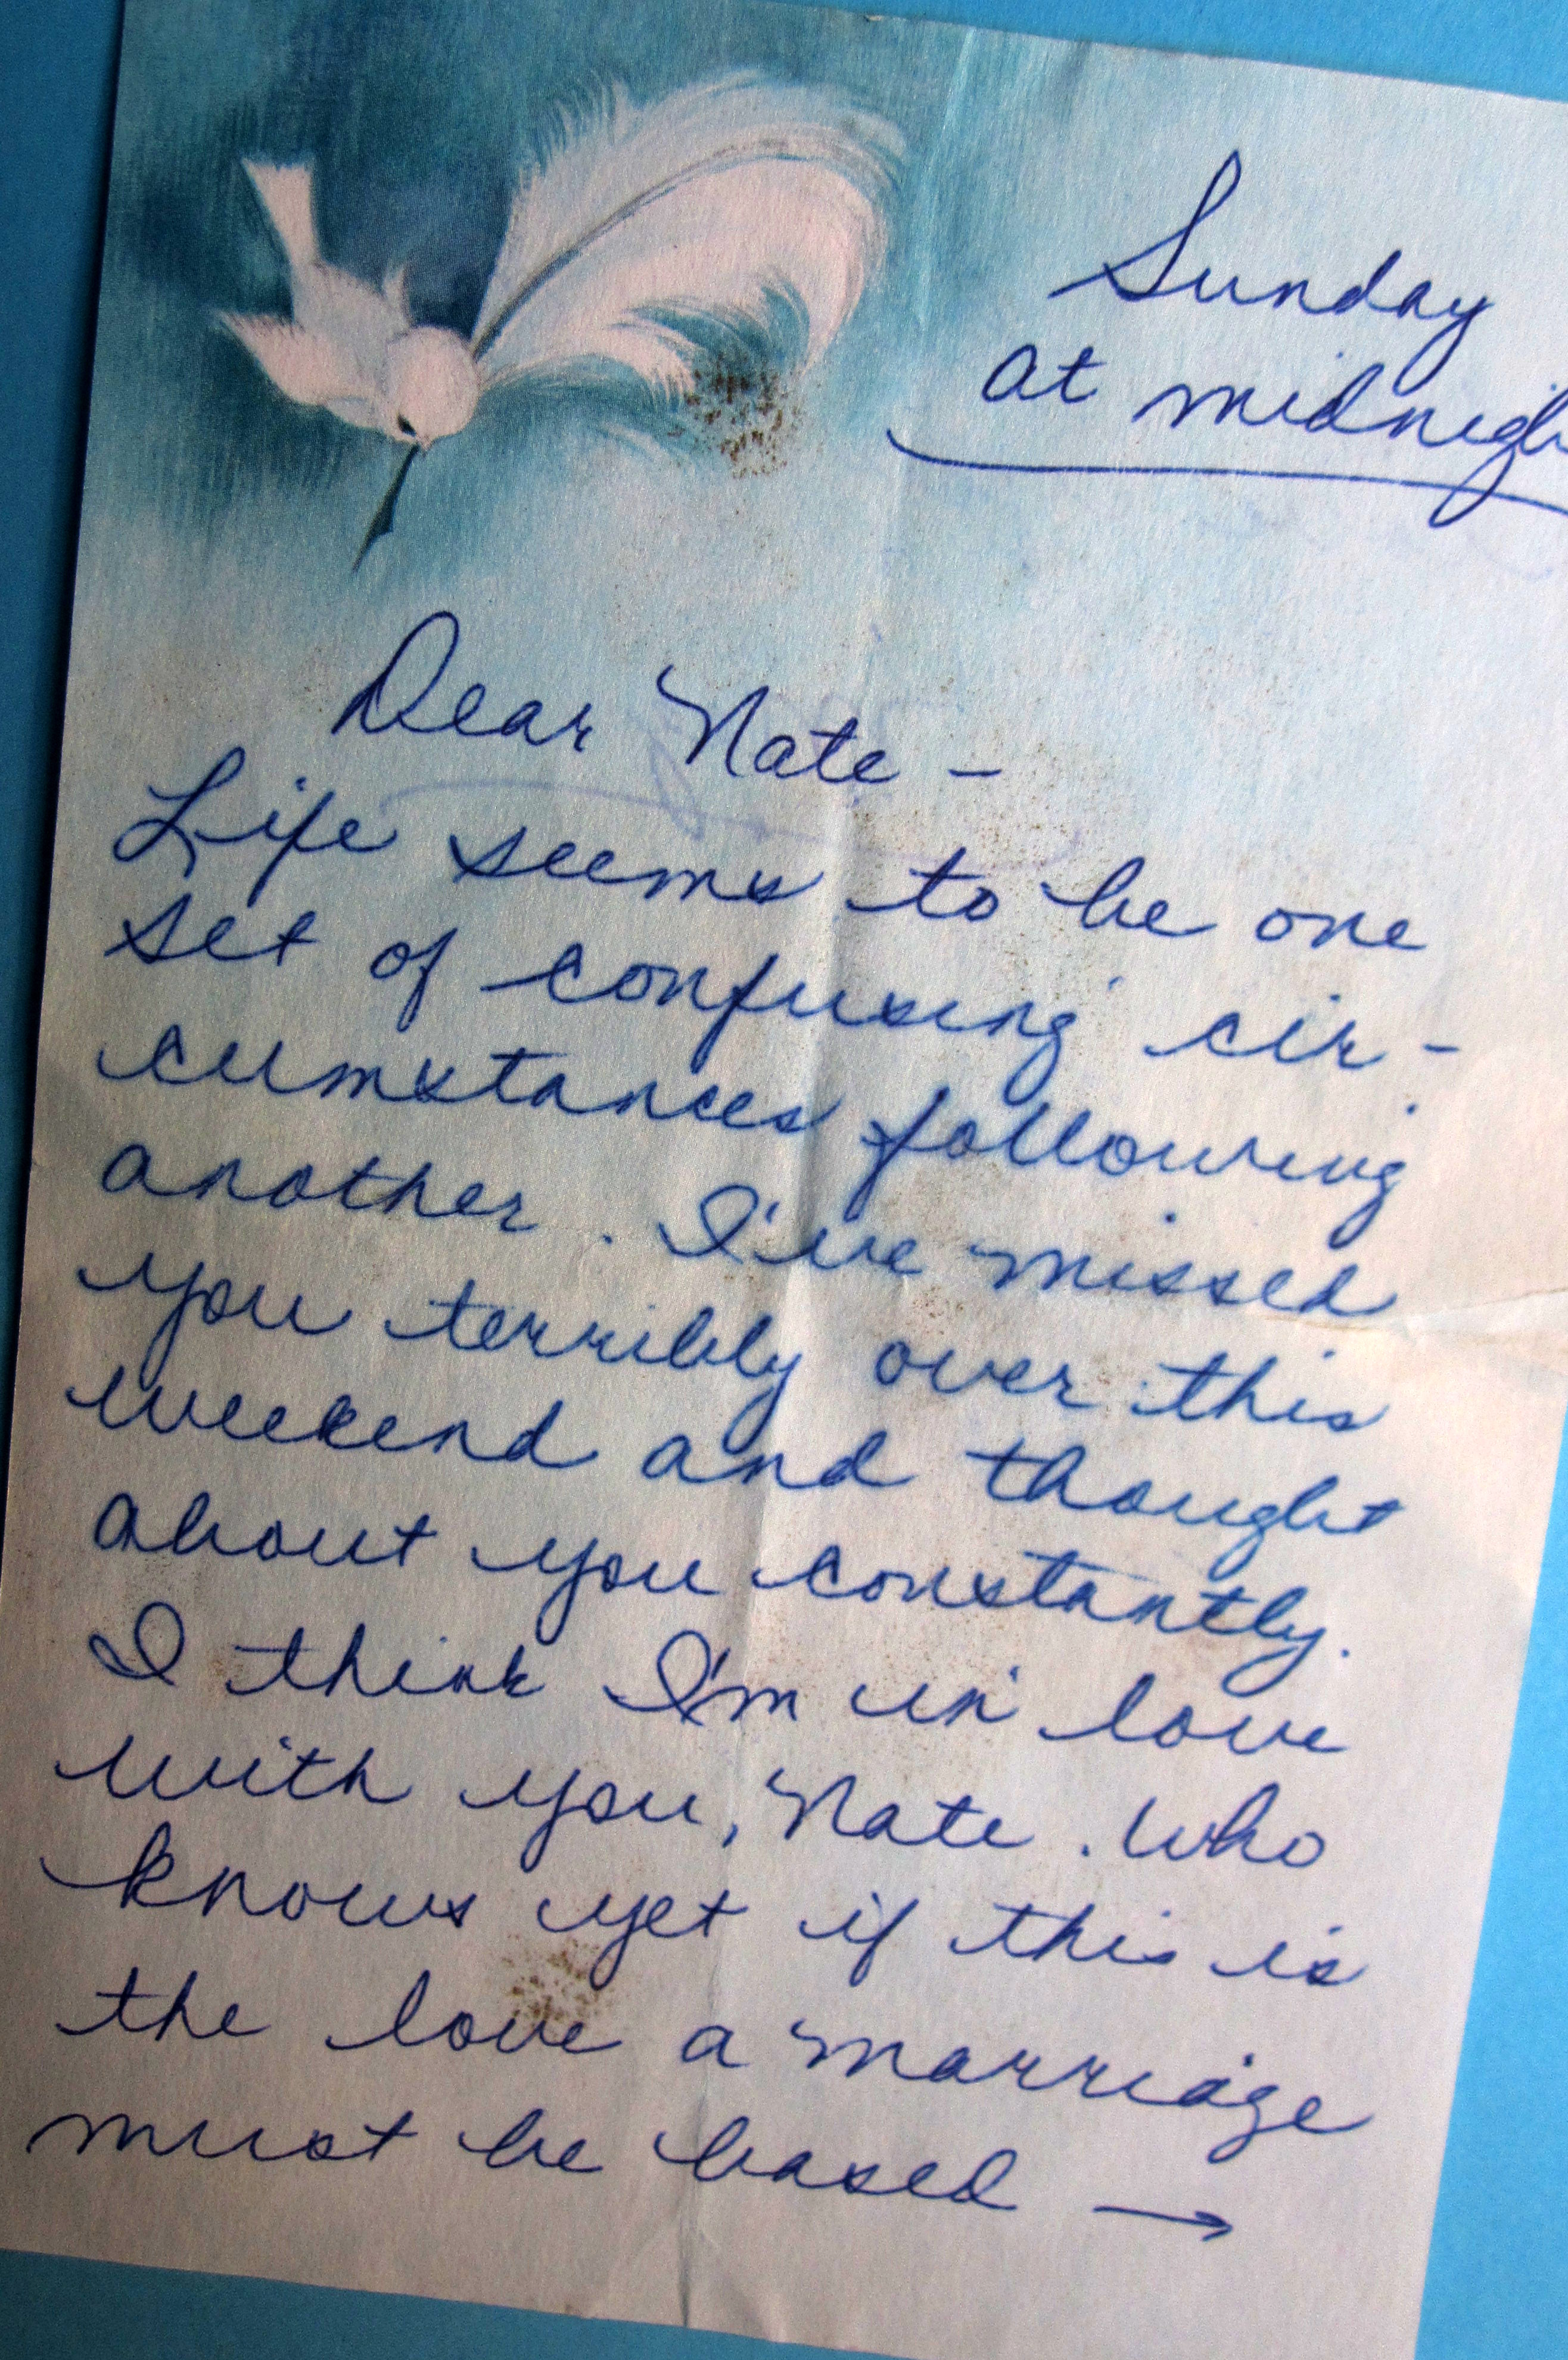 Sunday
at midnigh
Dear Nate -
Life seems to be one
set of confusing cir-
cumstances following
another. I've missed
you terribly over this
weekend and thought
about you constantly.
I think I'm in love
with you, Nate. Who
knows yet if this is
the love a marriage
must be based →